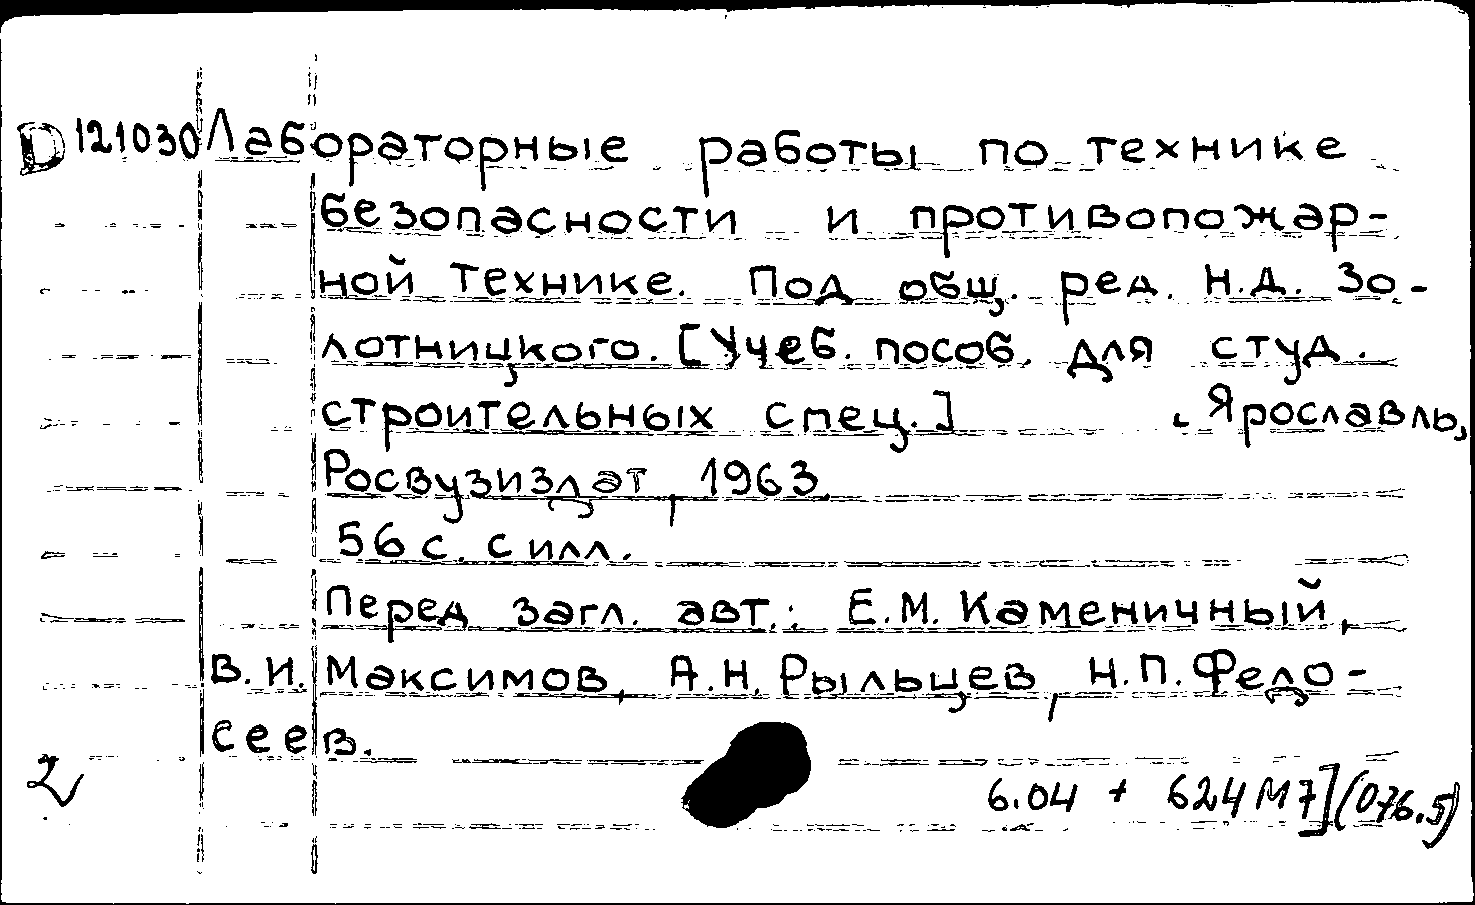 D 121030 Лабораторные работы по технике
безопасности и противопожар-
ной технике. Под общ. ред. Н.Д. Зо-
лотницкого. [Учеб. пособ. для студ.
строительных спец.] . Ярославль,
Росвузиздат, 1963.
56 с. с илл.
Перед загл. авт.: Е.М. Каменичный,
В.И. Максимов, А.Н. Рыльцев, Н.П. Федо-
сеев.
2
6.04 + 624М7](076.5)